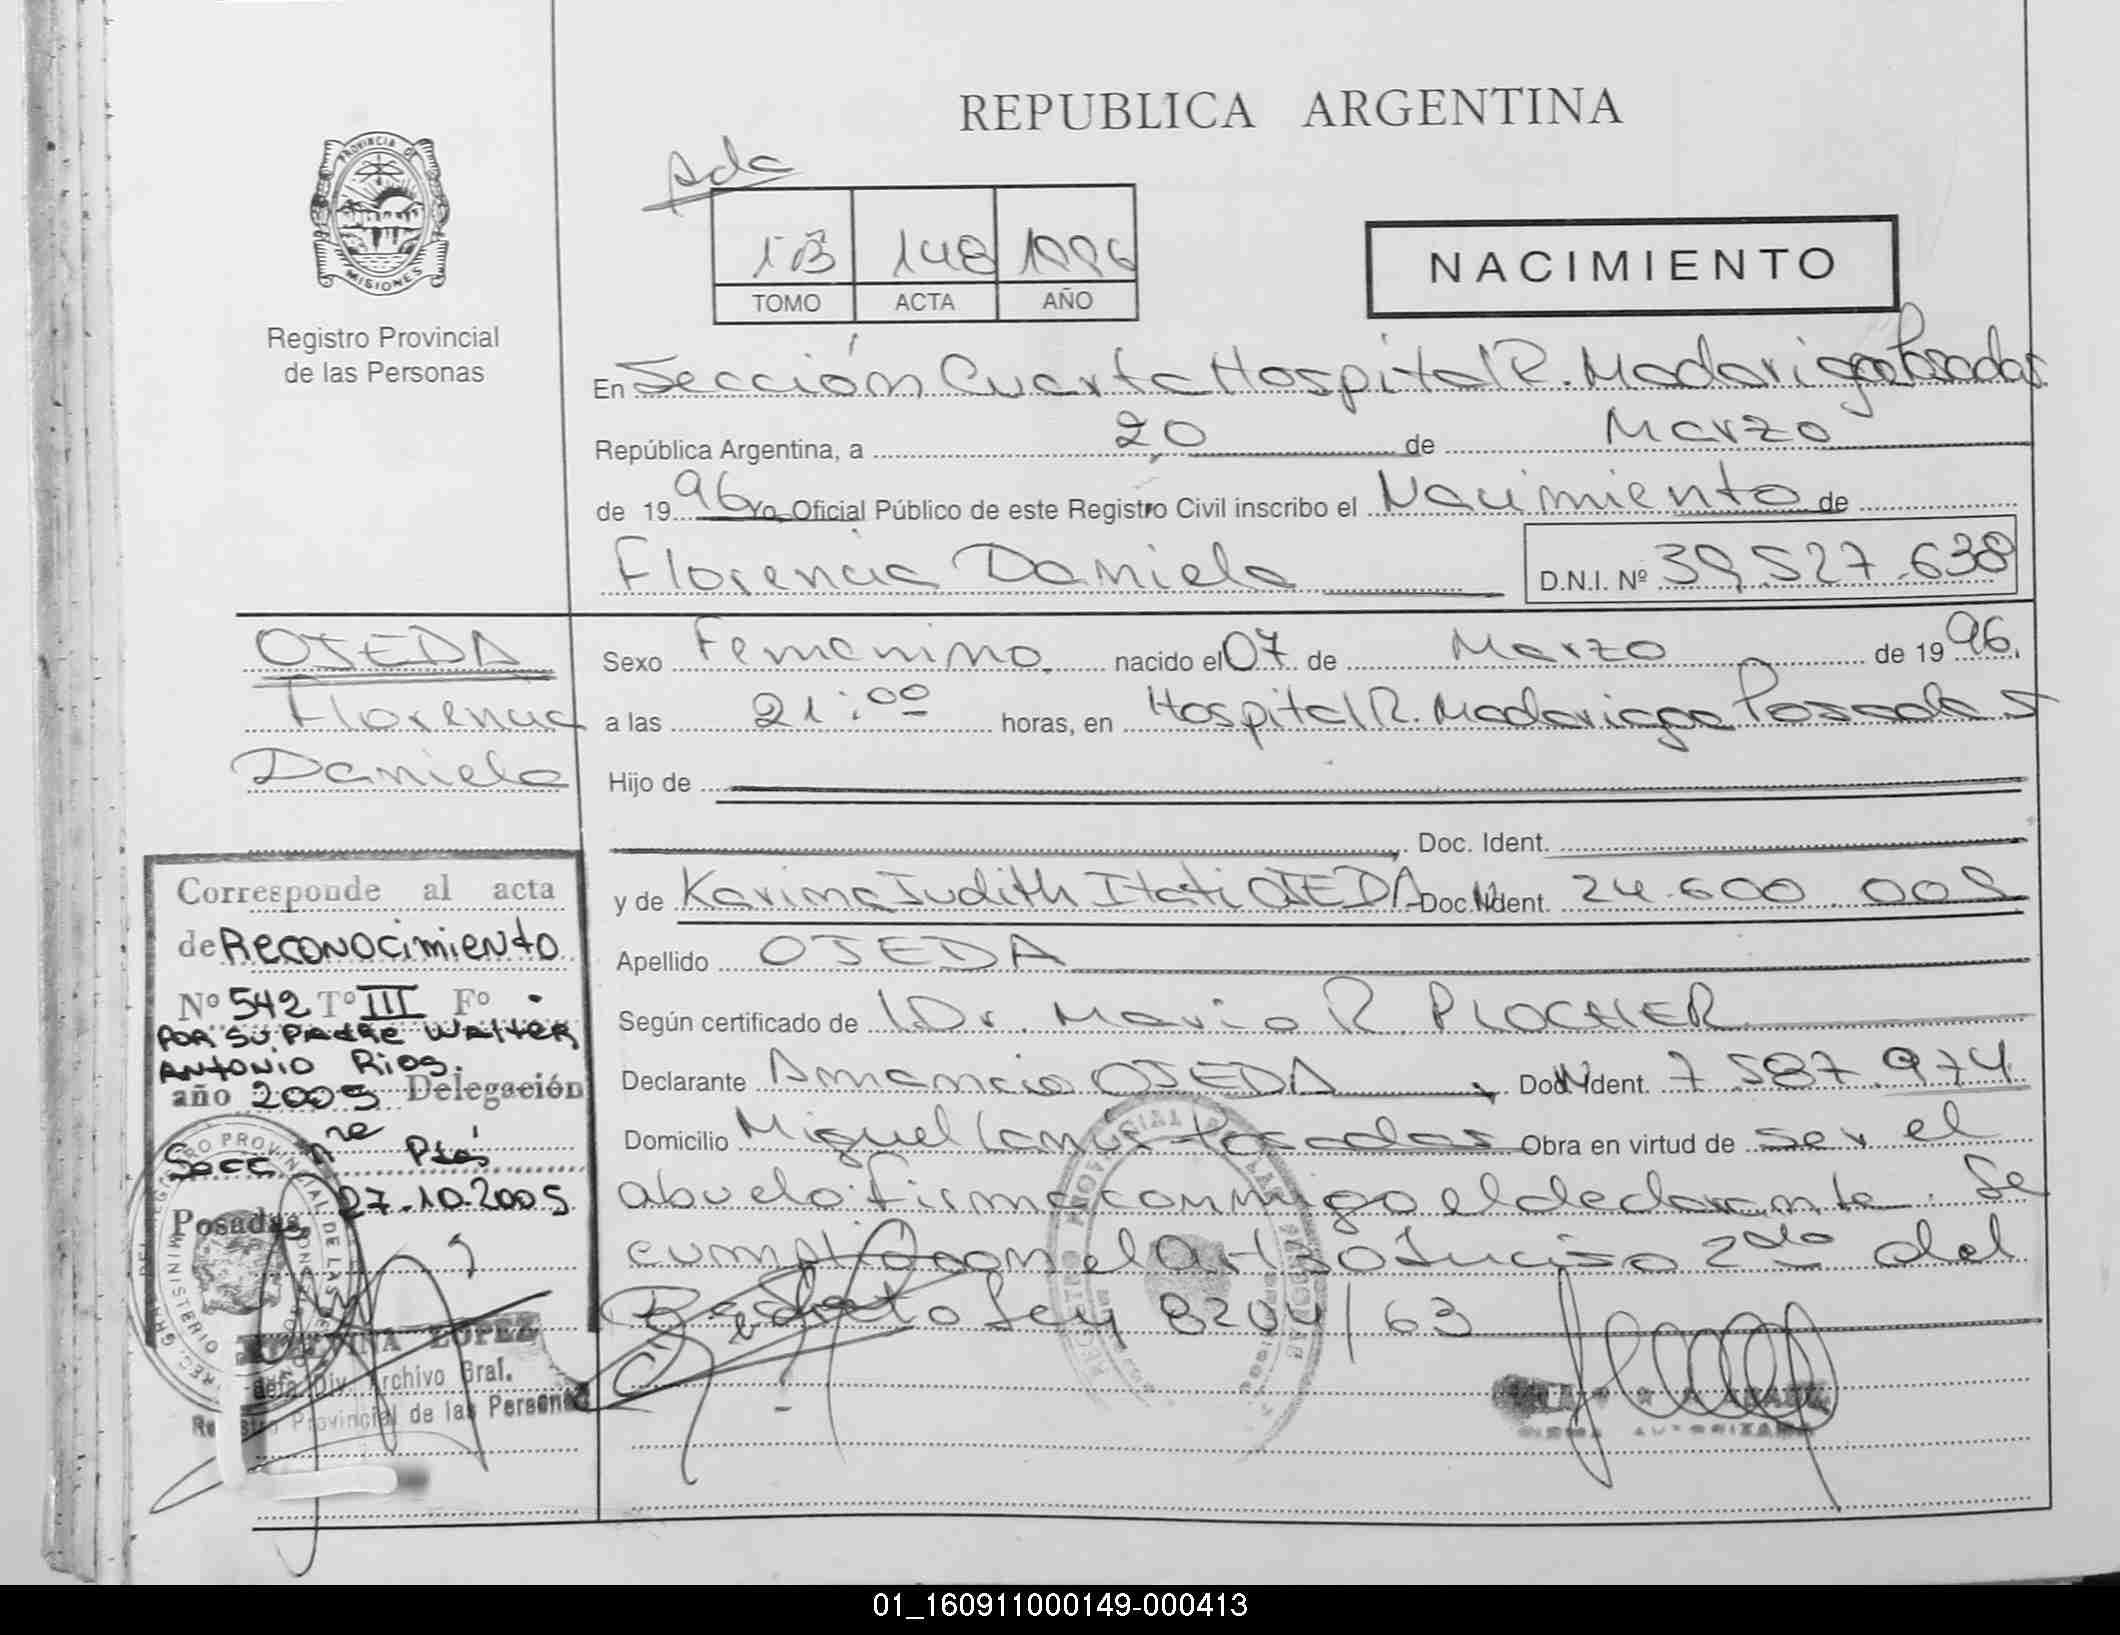 REPUBLICA ARGENTINA
PROVINCIA DE
MISIONES
Registro Provincial
de las Personas
148 1996
TOMO ACTA AÑO
NACIMIENTO
En Sección Cuarta Hospital R. Madariaga Posadas
República Argentina, a 20 de Marzo
de 1996 Yo, Oficial Público de este Registro Civil inscribo el Nacimiento de
Florencia Daniela D.N.I. Nº 39.527.638
OJEDA
Florencia
Daniela
Sexo Femenino nacido el 07 de Marzo de 1996.
a las 21:00 horas, en Hospital R. Madariaga Posadas
Hijo de
Doc. Ident.
y de Karina Judith Itati OJEDA Doc. Ident. 24.600.009
Apellido OJEDA
Según certificado de Dr. Mario R. PLOCHER
Declarante Amancio OJEDA, Doc. Ident. 7.587.974
Domicilio Miguel Lanús Posadas Obra en virtud de ser el
abuelo: firma conmigo el declarante. Se
cumplió con el Art 30 Inciso 2do del
Decreto Ley 8204/63
Corresponde al acta
de Reconocimiento
Nº 542 Tº III Fº
POR SU PADRE WALTER
ANTONIO Rios.
año 2005 Delegación
Secc Pdas
Posadas 27-10-2005
LOPEZ
Jefa Div. Archivo Gral.
Registro Provincial de las Personas
01_160911000149-000413